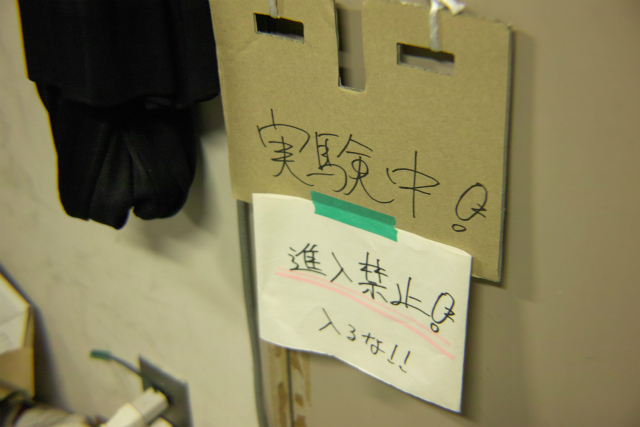 実験中!
進入禁止!
入るな!!